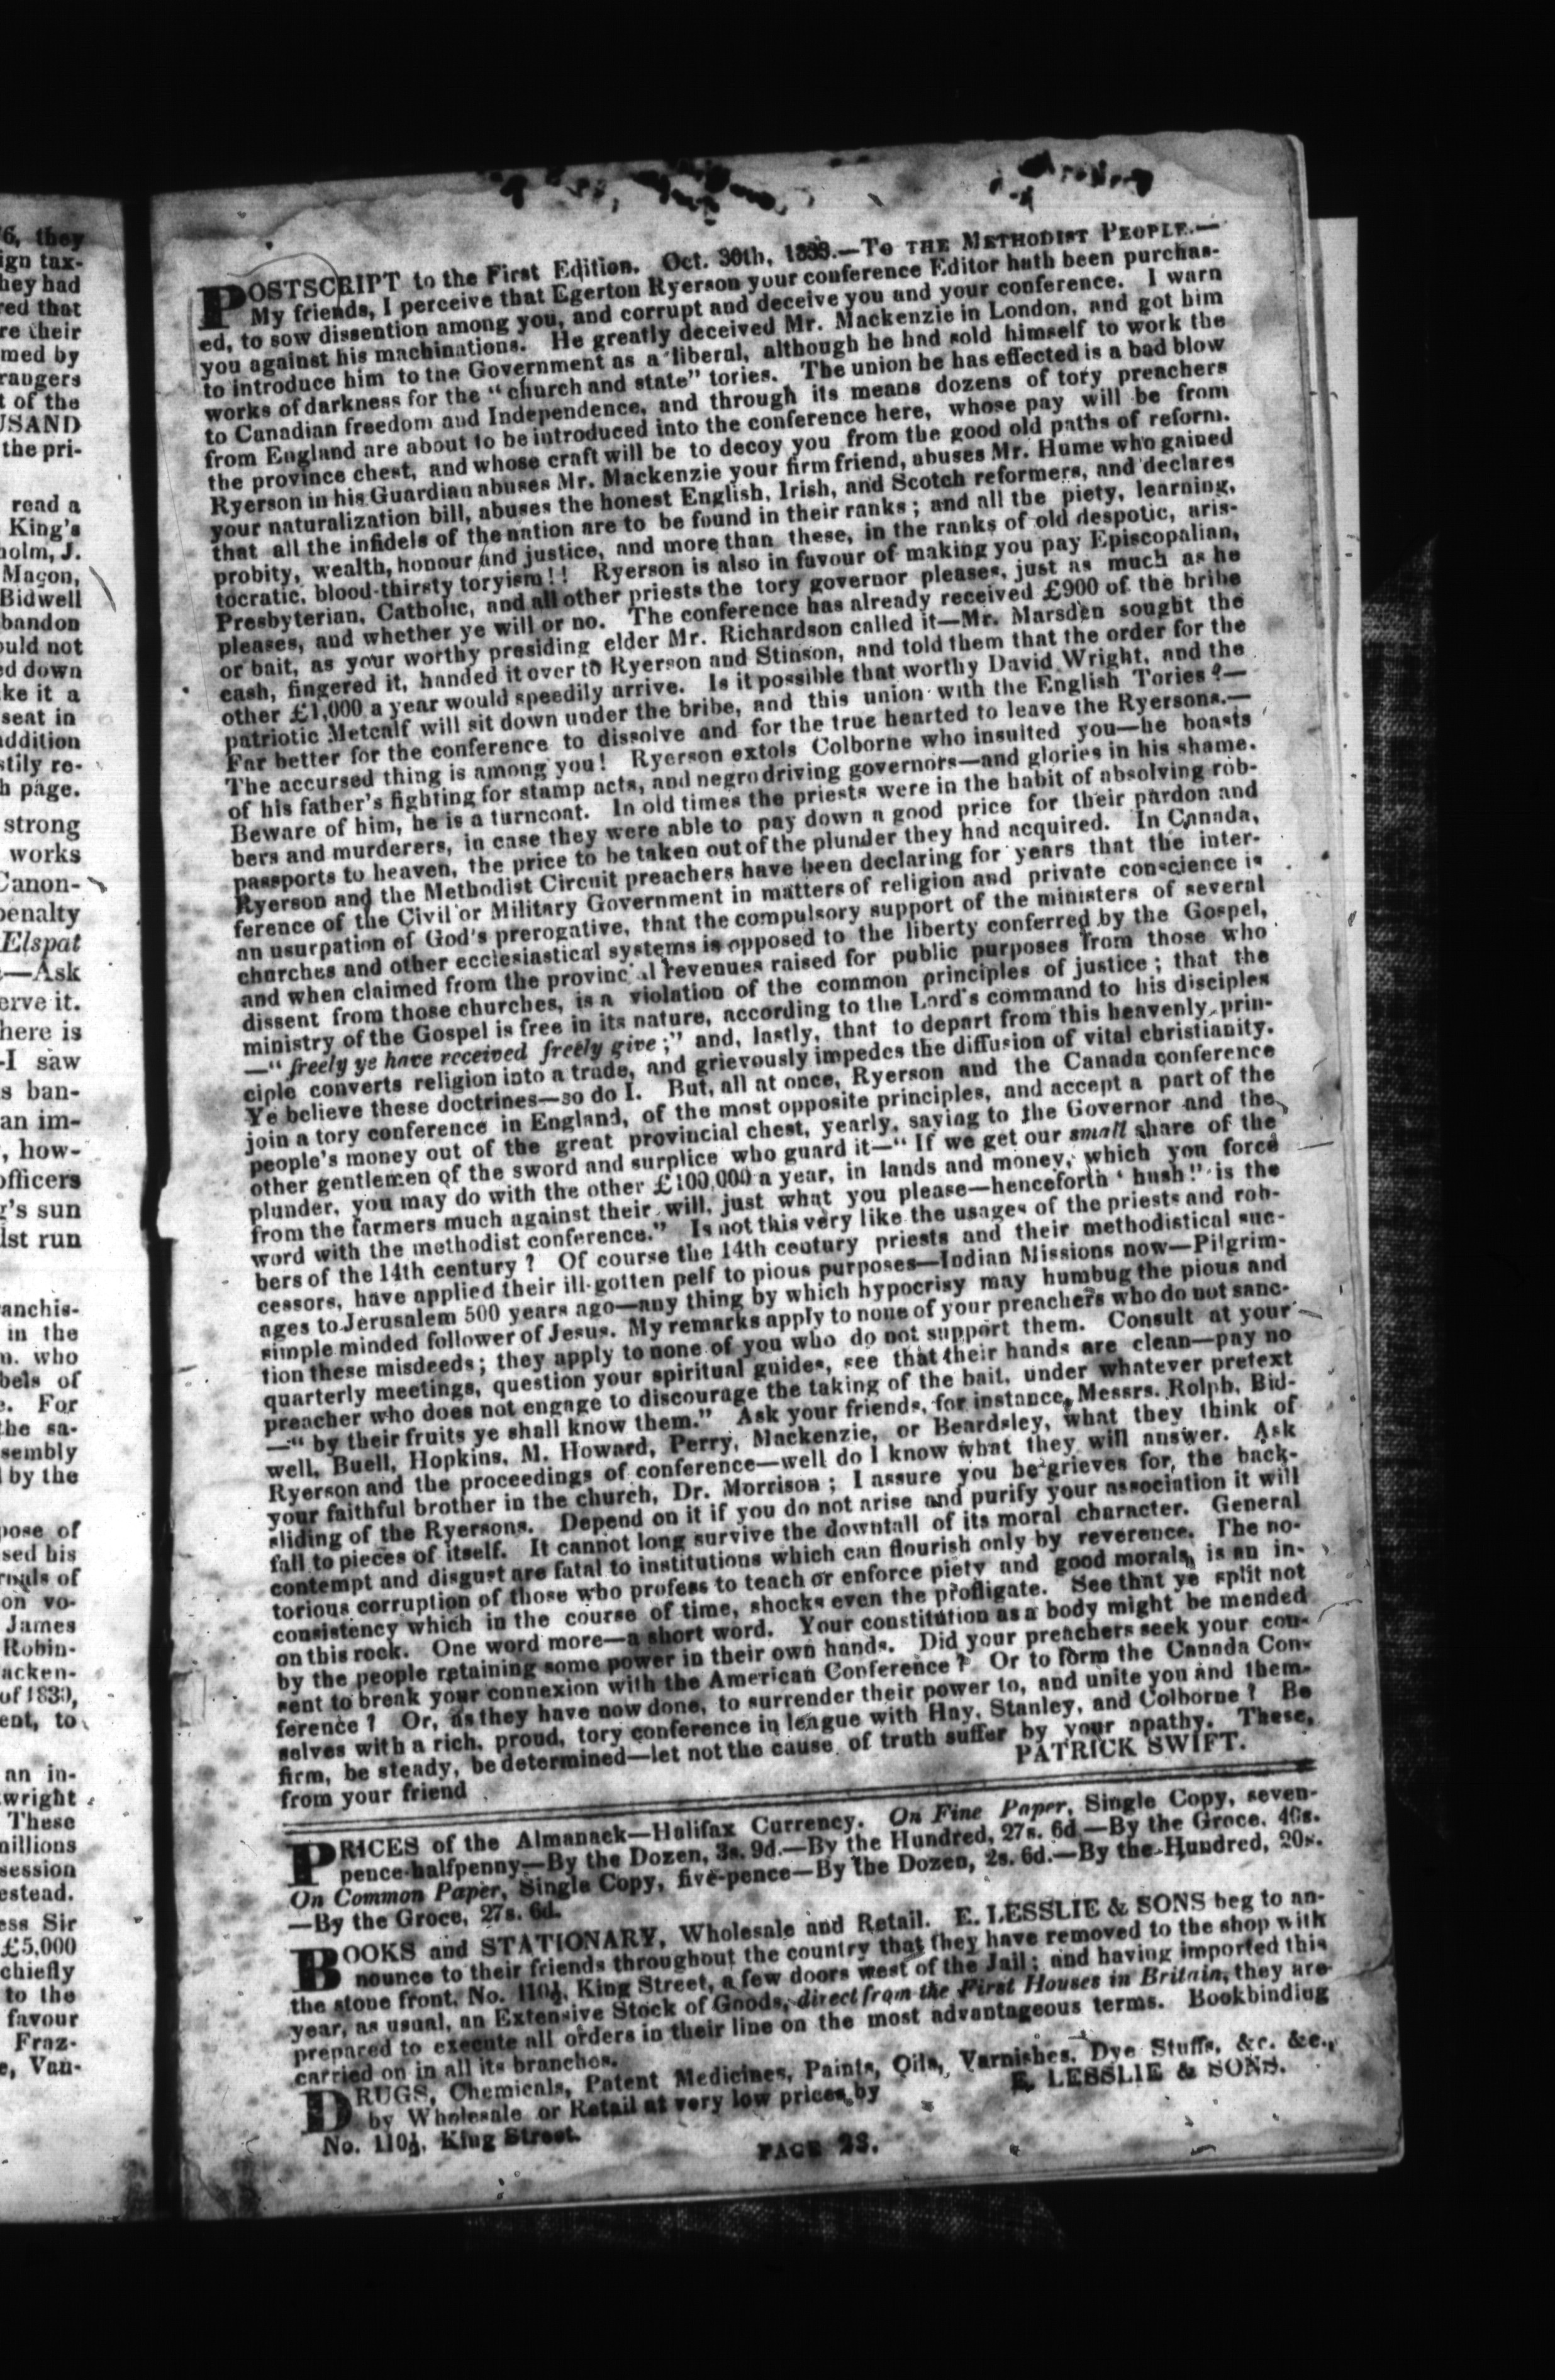 6, they
ign tax-
hey had
red that
re their
med by
rangers
t of the
USAND
the pri-
read a
King's
holm, J.
Macon,
Bidwell
bandon
ould not
ed down
ke it a
seat in
addition
stily re-
h page.
strong
works
Canon-
penalty
Elspat
—Ask
erve it.
here is
-I saw
s ban-
an im-
, how-
officers
g's sun
lst run
anchis-
in the
n. who
bels of
e. For
the sa-
sembly
by the
pose of
sed his
rnals of
on vo-
James
Robin-
acken-
of 1830,
ent, to
an in-
wright
These
millions
session
estead.
ess Sir
£5,000
chiefly
to the
favour
Fraz-
e, Van-
POSTSCRIPT to the First Edition. Oct. 30th, 1833.—To THE METHODIST PEOPLE.—
My friends, I perceive that Egerton Ryerson your conference Editor hath been purchas-
ed, to sow dissention among you, and corrupt and deceive you and your conference. I warn
you against his machinations. He greatly deceived Mr. Mackenzie in London, and got him
to introduce him to the Government as a liberal, although he had sold himself to work the
works of darkness for the "church and state" tories. The union he has effected is a bad blow
to Canadian freedom and Independence, and through its means dozens of tory preachers
from England are about to be introduced into the conference here, whose pay will be from
the province chest, and whose craft will be to decoy you from the good old paths of reform.
Ryerson in his Guardian abuses Mr. Mackenzie your firm friend, abuses Mr. Hume who gained
your naturalization bill, abuses the honest English, Irish, and Scotch reformers, and declares
that all the infidels of the nation are to be found in their ranks; and all the piety, learning,
probity, wealth, honour and justice, and more than these, in the ranks of old despotic, aris-
tocratic, blood-thirsty toryism!! Ryerson is also in favour of making you pay Episcopalian,
Presbyterian, Catholic, and all other priests the tory governor pleases, just as much as he
pleases, and whether ye will or no. The conference has already received £900 of the bribe
or bait, as your worthy presiding elder Mr. Richardson called it—Mr. Marsden sought the
cash, fingered it, handed it over to Ryerson and Stinson, and told them that the order for the
other £1,000 a year would speedily arrive. Is it possible that worthy David Wright, and the
patriotic Metcalf will sit down under the bribe, and this union with the English Tories?—
Far better for the conference to dissolve and for the true hearted to leave the Ryersons.—
The accursed thing is among you! Ryerson extols Colborne who insulted you—he boasts
of his father's fighting for stamp acts, and negro driving governors—and glories in his shame.
Beware of him, he is a turncoat. In old times the priests were in the habit of absolving rob-
bers and murderers, in case they were able to pay down a good price for their pardon and
passports to heaven, the price to be taken out of the plunder they had acquired. In Canada,
Ryerson and the Methodist Circuit preachers have been declaring for years that the inter-
ference of the Civil or Military Government in matters of religion and private conscience is
an usurpation of God's prerogative, that the compulsory support of the ministers of several
churches and other ecclesiastical systems is opposed to the liberty conferred by the Gospel,
and when claimed from the provincial revenues raised for public purposes from those who
dissent from those churches, is a violation of the common principles of justice; that the
ministry of the Gospel is free in its nature, according to the Lord's command to his disciples
—"freely ye have received freely give;" and, lastly, that to depart from this heavenly prin-
ciple converts religion into a trade, and grievously impedes the diffusion of vital christianity.
Ye believe these doctrines—so do I. But, all at once, Ryerson and the Canada conference
join a tory conference in England, of the most opposite principles, and accept a part of the
people's money out of the great provincial chest, yearly, saying to the Governor and the
other gentlemen of the sword and surplice who guard it—"If we get our small share of the
plunder, you may do with the other £100,000 a year, in lands and money, which you force
from the farmers much against their will, just what you please—henceforth 'hush!' is the
word with the methodist conference." Is not this very like the usages of the priests and rob-
bers of the 14th century? Of course the 14th century priests and their methodistical suc-
cessors, have applied their ill-gotten pelf to pious purposes—Indian Missions now—Pilgrim-
ages to Jerusalem 500 years ago—any thing by which hypocrisy may humbug the pious and
simple minded follower of Jesus. My remarks apply to none of your preachers who do not sanc-
tion these misdeeds; they apply to none of you who do not support them. Consult at your
quarterly meetings, question your spiritual guides, see that their hands are clean—pay no
preacher who does not engage to discourage the taking of the bait, under whatever pretext
—"by their fruits ye shall know them." Ask your friends, for instance, Messrs. Rolph, Bid-
well, Buell, Hopkins, M. Howard, Perry, Mackenzie, or Beardsley, what they think of
Ryerson and the proceedings of conference—well do I know what they will answer. Ask
your faithful brother in the church, Dr. Morrison; I assure you he grieves for the back-
sliding of the Ryersons. Depend on it if you do not arise and purify your association it will
fall to pieces of itself. It cannot long survive the downfall of its moral character. General
contempt and disgust are fatal to institutions which can flourish only by reverence. The no-
torious corruption of those who profess to teach or enforce piety and good morals, is an in-
consistency which in the course of time, shocks even the profligate. See that ye split not
on this rock. One word more—a short word. Your constitution as a body might be mended
by the people retaining some power in their own hands. Did your preachers seek your con-
sent to break your connexion with the American Conference? Or to form the Canada Con-
ference? Or, as they have now done, to surrender their power to, and unite you and them-
selves with a rich, proud, tory conference in league with Hay, Stanley, and Colborne? Be
firm, be steady, be determined—let not the cause of truth suffer by your apathy. These,
from your friend
PATRICK SWIFT.
PRICES of the Almanack—Halifax Currency. On Fine Paper, Single Copy, seven-
pence-halfpenny—By the Dozen, 3s. 9d.—By the Hundred, 27s. 6d.—By the Groce, 40s.
On Common Paper, Single Copy, five-pence—By the Dozen, 2s. 6d.—By the Hundred, 20s.
—By the Groce, 27s. 6d.
BOOKS and STATIONARY, Wholesale and Retail. E. LESSLIE & SONS beg to an-
nounce to their friends throughout the country that they have removed to the shop with
the stone front, No. 110½, King Street, a few doors west of the Jail; and having imported this
year, as usual, an Extensive Stock of Goods, direct from the First Houses in Britain, they are
prepared to execute all orders in their line on the most advantageous terms. Bookbinding
carried on in all its branches.
DRUGS, Chemicals, Patent Medicines, Paints, Oils, Varnishes, Dye Stuffs, &c. &c.,
by Wholesale or Retail at very low prices by
E. LESSLIE & SONS.
No. 110½, King Street.
PAGE 23.